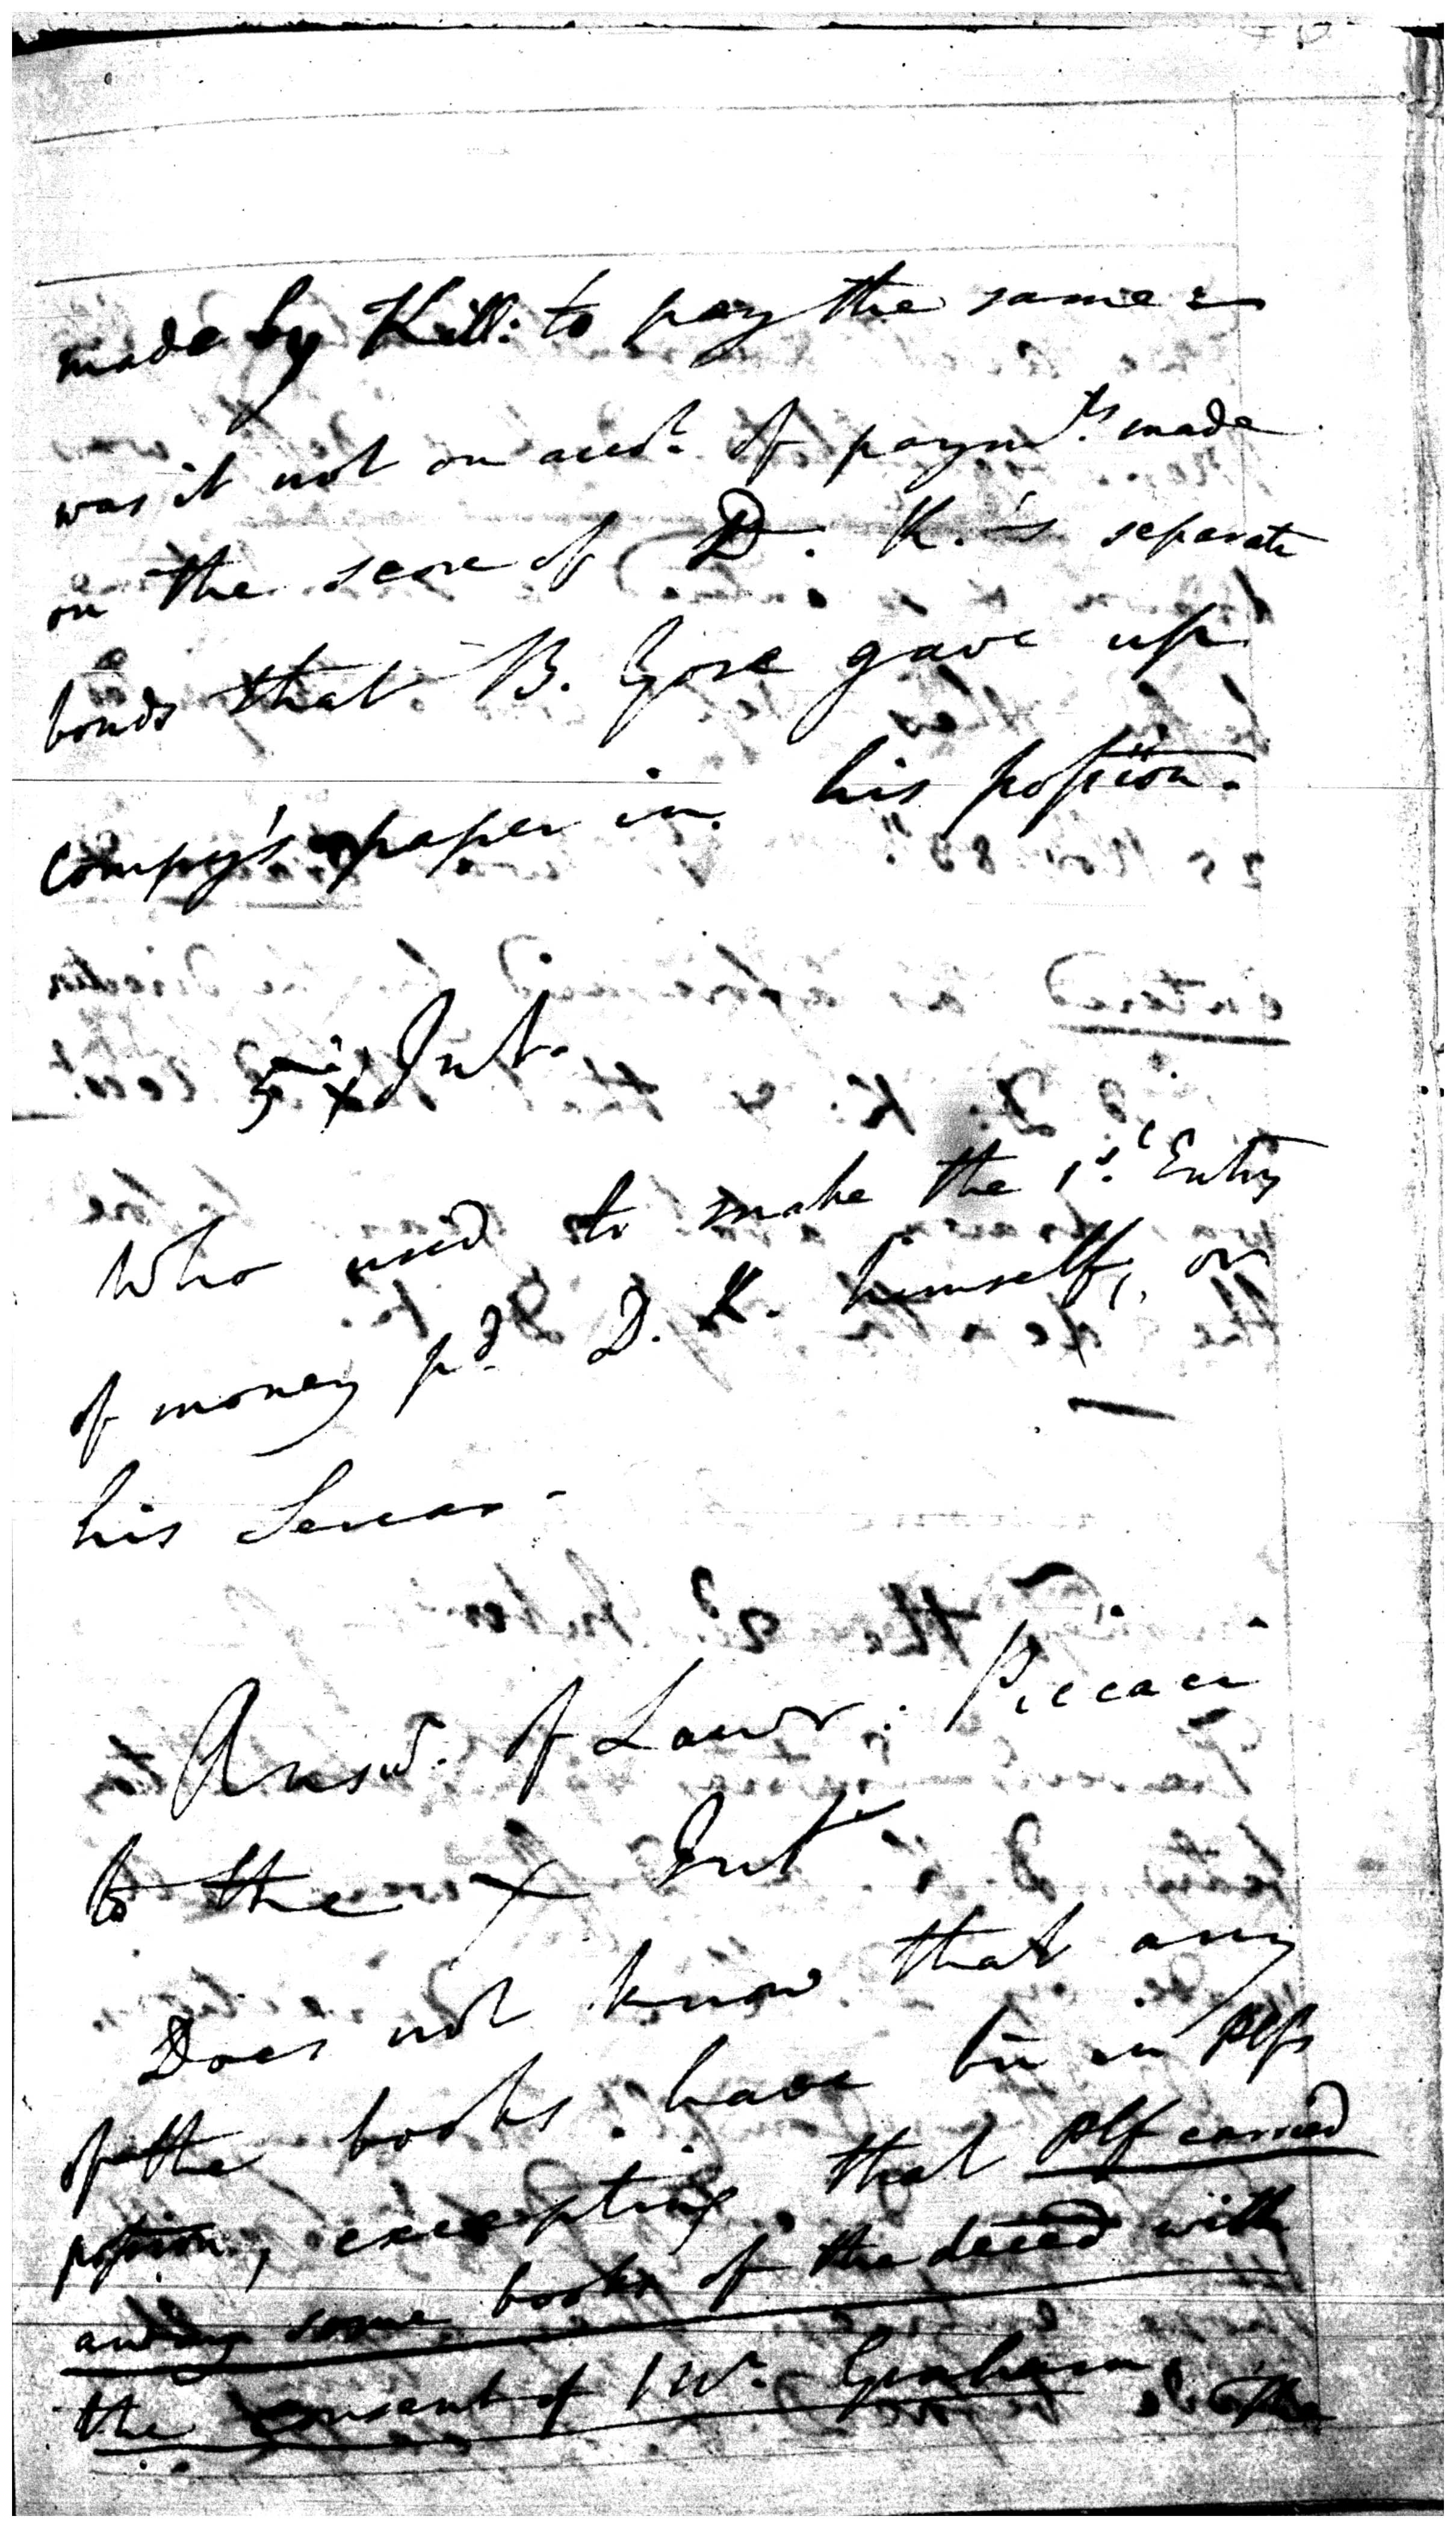 made by Kill: to pay the same &
was it not on acco.t of paym.ts made
on the score of D. K.'s separate
bonds that B. Gose gave up
compy's paper in his possion.
5 x Int.
Who used to make the 1st. Entry
of money pd. D. K. himself, or
his
Answ. of Lawr:
to the x Int
Does not know that any
of the books have bn in plfs
possion, excepting that plf carried
away some books of the deced with
the consent of W. Graham, the